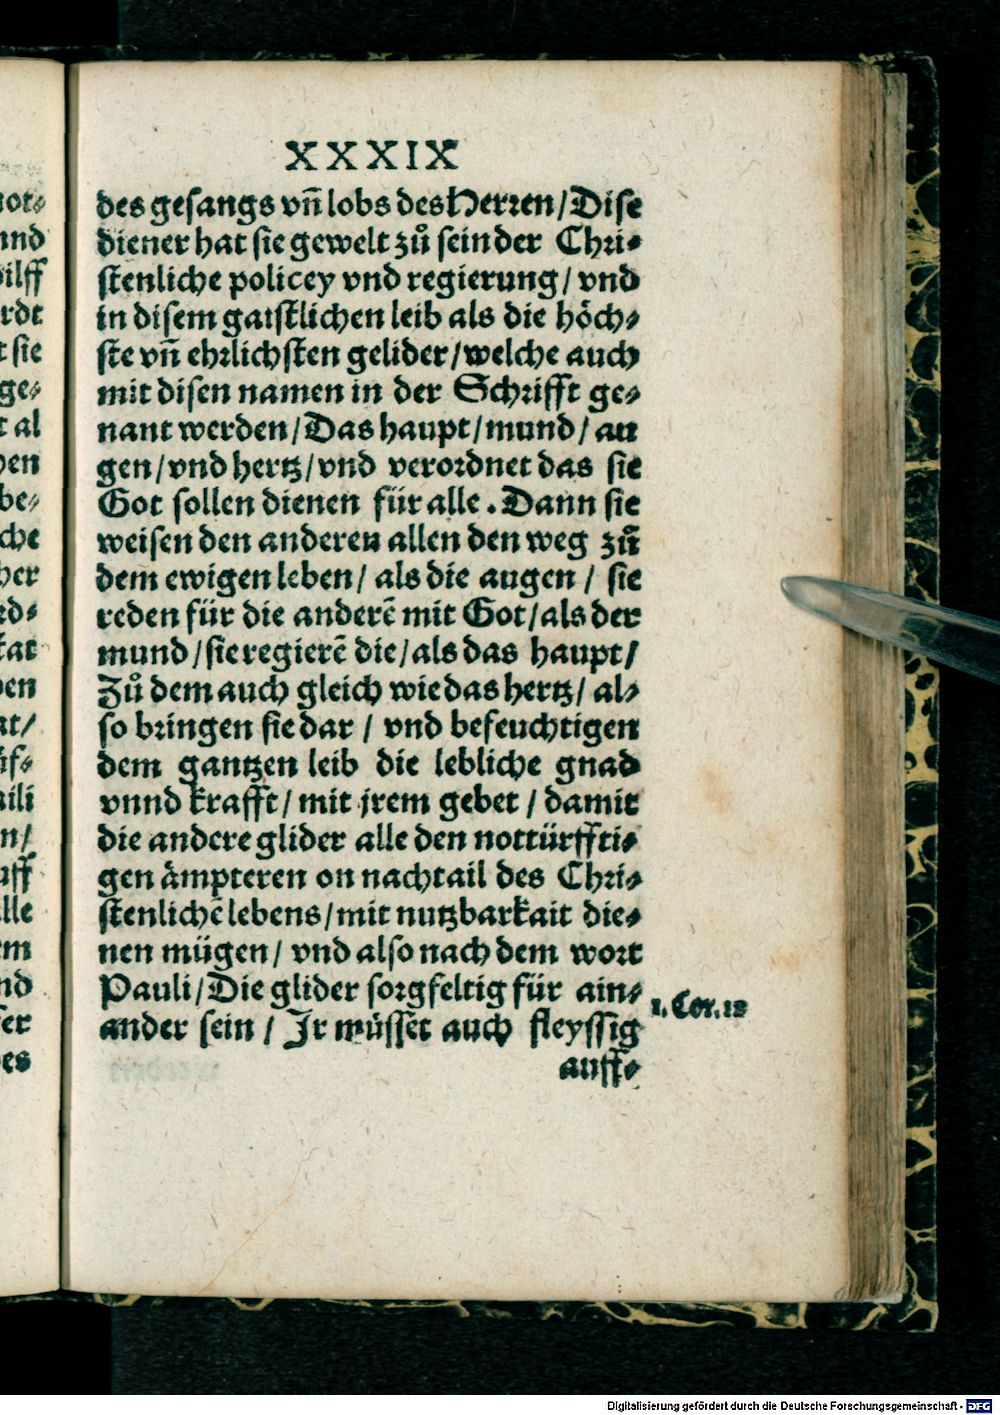 XXXIX
des gesangs vn̄ lobs des Herren/ Dise
diener hat sie gewelt zů sein der Chri⸗
stenliche policey vnd regierung/ vnd
in disem gaistlichen leib als die hoͤch⸗
ste vn̄ ehrlichsten gelider/ welche auch
mit disen namen in der Schrifft ge⸗
nant werden/ Das haupt/ mund/ au
gen/ vnd hertz/ vnd verordnet das sie
Got sollen dienen für alle. Dann sie
weisen den anderen allen den weg zů
dem ewigen leben/ als die augen/ sie
reden für die anderē mit Got/ als der
mund/ sie regierē die/ als das haupt/
Zů dem auch gleich wie das hertz/ al⸗
so bringen sie dar/ vnd befeuchtigen
dem gantzen leib die lebliche gnad
vnnd krafft/ mit jrem gebet/ damit
die andere glider alle den nottürffti⸗
gen aͤmpteren on nachtail des Chri⸗
stenlichē lebens/ mit nutzbarkait die⸗
nen mügen/ vnd also nach dem wort
Pauli/ Die glider sorgfeltig für ain⸗
ander sein/ Jr müsset auch fleyssig
1. Cor. 12
auff⸗
not⸗
vnd
hilff
rdt
t sie
ge⸗
t al
be⸗
che
her
kat
at/
n/
uff
lle
em
nd
es
Digitalisierung gefördert durch die Deutsche Forschungsgemeinschaft - DFG